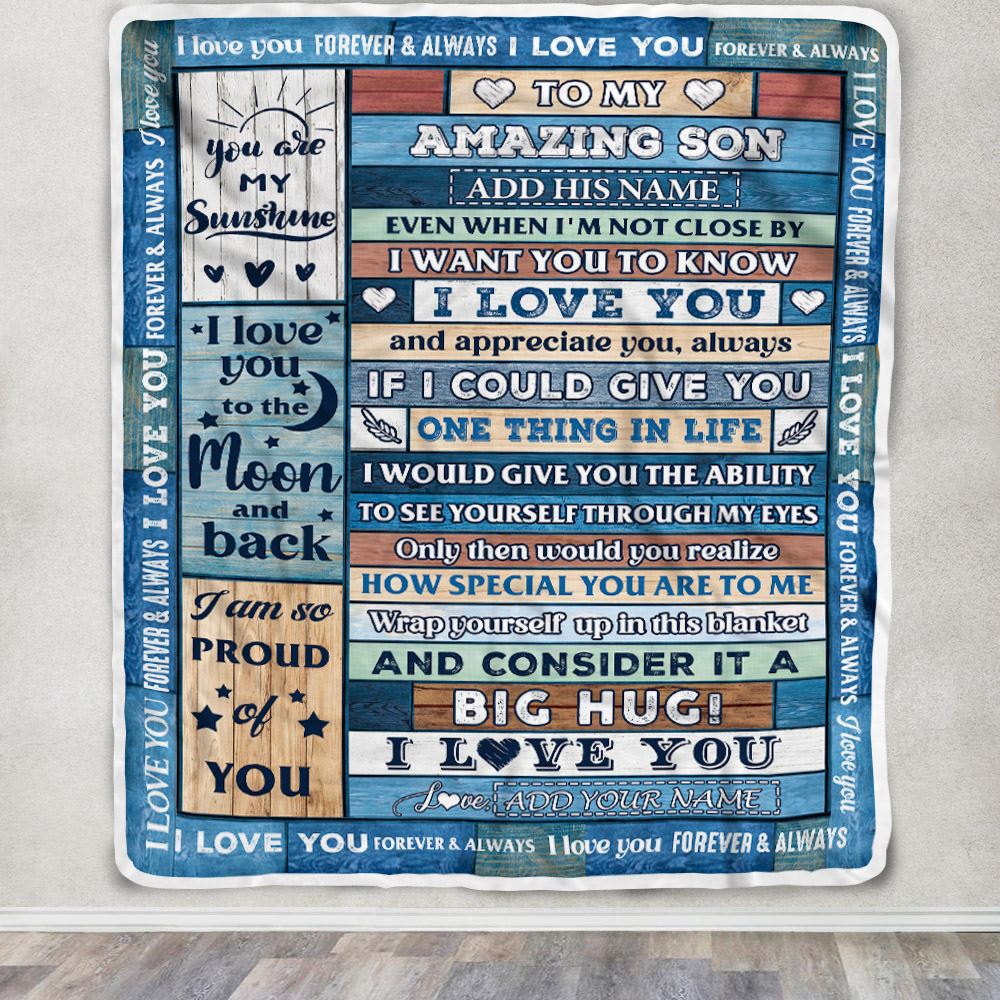 I love you FOREVER & ALWAYS I LOVE YOU FOREVER & ALWAYS
I LOVE YOU FOREVER & ALWAYS I LOVE YOU FOREVER & ALWAYS I love you
I LOVE YOU FOREVER & ALWAYS I LOVE YOU FOREVER & ALWAYS I love you
you are
MY
Sunshine
I love
you
to the
Moon
and
back
I am so
PROUD
of
YOU
TO MY
AMAZING SON
ADD HIS NAME
EVEN WHEN I'M NOT CLOSE BY
I WANT YOU TO KNOW
I LOVE YOU
and appreciate you, always
IF I COULD GIVE YOU
ONE THING IN LIFE
I WOULD GIVE YOU THE ABILITY
TO SEE YOURSELF THROUGH MY EYES
Only then would you realize
HOW SPECIAL YOU ARE TO ME
Wrap yourself up in this blanket
AND CONSIDER IT A
BIG HUG!
I LOVE YOU
Love, ADD YOUR NAME
I LOVE YOU FOREVER & ALWAYS I love you FOREVER & ALWAYS